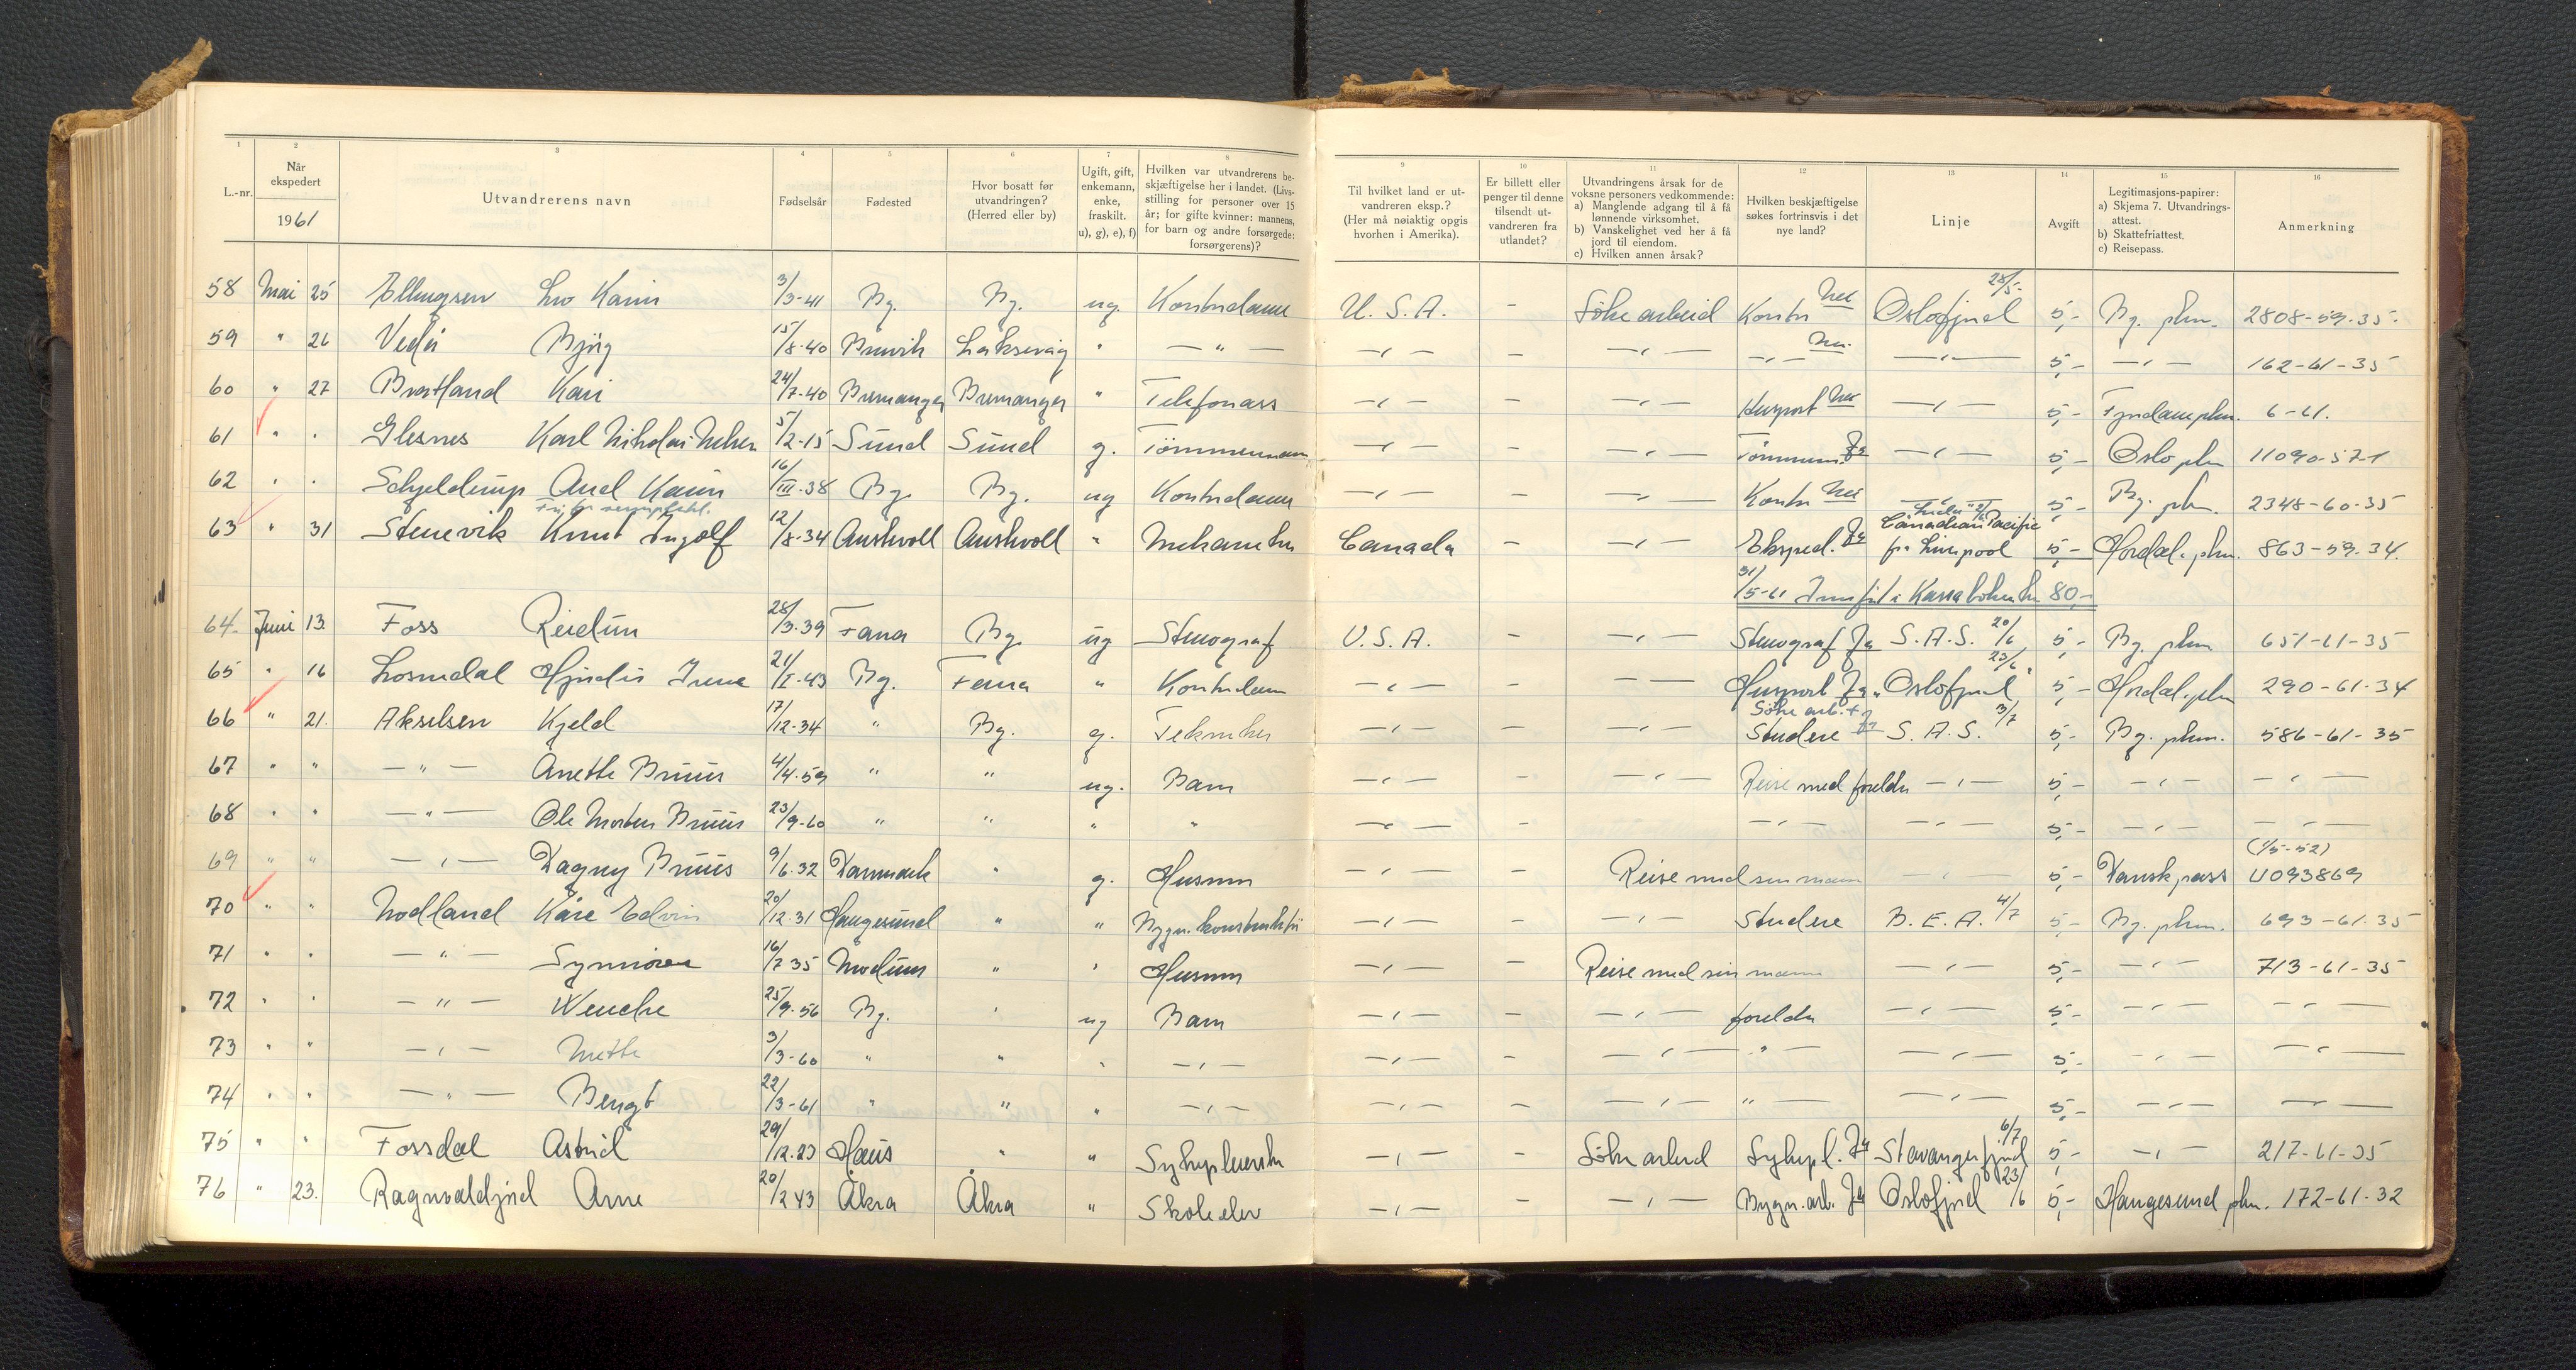 1 2 3 4 5 6 7 8 9 10 11 12 13 14 15 16
L.-nr.
Når ekspedert
1961
Utvandrerens navn
Fødselsår
Fødested
Hvor bosatt før utvandringen? (Herred eller by)
Ugift, gift, enkemann, enke, fraskilt. u), g), e), f)
Hvilken var utvandrerens beskjæftigelse her i landet. (Livsstilling for personer over 15 år; for gifte kvinner: mannens, for barn og andre forsørgede: forsørgerens)?
Til hvilket land er utvandreren eksp.? (Her må nøiaktig opgis hvorhen i Amerika).
Er billett eller penger til denne tilsendt utvandreren fra utlandet?
Utvandringens årsak for de voksne personers vedkommende:
a) Manglende adgang til å få lønnende virksomhet.
b) Vanskelighet ved her å få jord til eiendom.
c) Hvilken annen årsak?
Hvilken beskjæftigelse søkes fortrinsvis i det nye land?
Linje
Avgift
Legitimasjons-papirer:
a) Skjema 7. Utvandringsattest.
b) Skattefriattest.
c) Reisepass.
Anmerkning
58 Mai 25 Ellingsen Karin 3/3-41 Bg. Bg. ug. Kontordame U.S.A. - Söke arbeid Kontor Nei Oslofjord 5,- Bg. pkm. 2808-59-35.
59 " 26 Bjørg 15/8-40 Bruvik Laksevåg " —"— —"— - —"— —"— Nei. —"— 5,- —"— 162-61-35
60 " 27 Kari 24/7-40 Bremanger Bremanger " Telefonass —"— - —"— Huspost Nei —"— 5,- 6-61.
61 " " Glesnes Karl Nikolai 5/2-15 Sund Sund g. Tömmermann —"— - —"— Tömmerm. Ja —"— 5,- Oslo pkm 11090-57-1
62 " " Schjelderup Aud Karin 16/III-38 Bg. Bg. ug Kontordame —"— - —"— Kontor Nei —"— 5,- Bg. pkm. 2348-60-35
63 " 31 Stenevik Knut Ingolf 12/8-34 Austevoll Austevoll " Mekaniker Canada - —"— Eksped. Ja Canadian Pacific fra Liverpool 5,- Hordal. pkm. 863-59-34.
31/5-61 80,-
64. Juni 13. Foss Reidun 28/3-39 Fana Bg. ug Stenograf U.S.A. - —"— Stenograf Ja S.A.S. 20/6 5,- Bg. pkm 651-61-35
65 " 16 Losnedal Hjørdis Irene 21/I-43 Bg. Fana " Kontordame —"— - —"— Huspost Ja "Oslofjord" 23/6 5,- Hordal. pkm 290-61-34
66 " 21. Akselsen Kjeld 17/12-34 " Bg. g. Tekniker —"— - —"— Söke arb. + Studere Ja S.A.S. 3/7 5,- Bg. pkm. 586-61-35
67 " " —"— Anette Bruus 4/4-59 " " ug. Barn —"— - —"— Reise med foreldre —"— 5,- —"— —"—
68 " " —"— Ole Morten Bruus 23/9-60 " " " " —"— - —"— —"— 5,- —"— —"—
69 " " —"— Dagny Bruus 9/6-32 Danmark " g. Husmor —"— - Reise med sin mann " 5,- Dansk pass (1/5-52) U093869
70 " " Nodland Kåre Edvin 20/12-31 Haugesund " " Bygn. konstruktör —"— - —"— Studere B.E.A. 4/7 5,- Bg. pkm. 693-61-35
71 " " —"— Synnöve 16/7 35 Modum " " Husmor —"— - Reise med sin mann —"— 5,- —"— 713-61-35
72 " " —"— Wenche 25/9-56 Bg. " ug Barn —"— - —"— foreldre —"— 5,- —"— —"—
73 " " —"— Mette 3/3-60 " " " —"— —"— - —"— —"— —"— 5,- —"— —"—
74 " " —"— Bengt 22/3-61 " " " —"— —"— - —"— —"— —"— 5,- —"— —
75 " " Fossdal Astrid 29/12-23 Haus " " Sykepleierske —"— - Söke arbeid Sykepl. Ja Stavangerfjord 6/7 5,- —"— 217-61-35
76 " 23. Ragnvaldjord Arne 20/2 43 Åkra Åkra " Skoleelev —"— - —"— Bygn. arb. Ja Oslofjord 23/6 5,- Haugesund pkm. 172-61-32